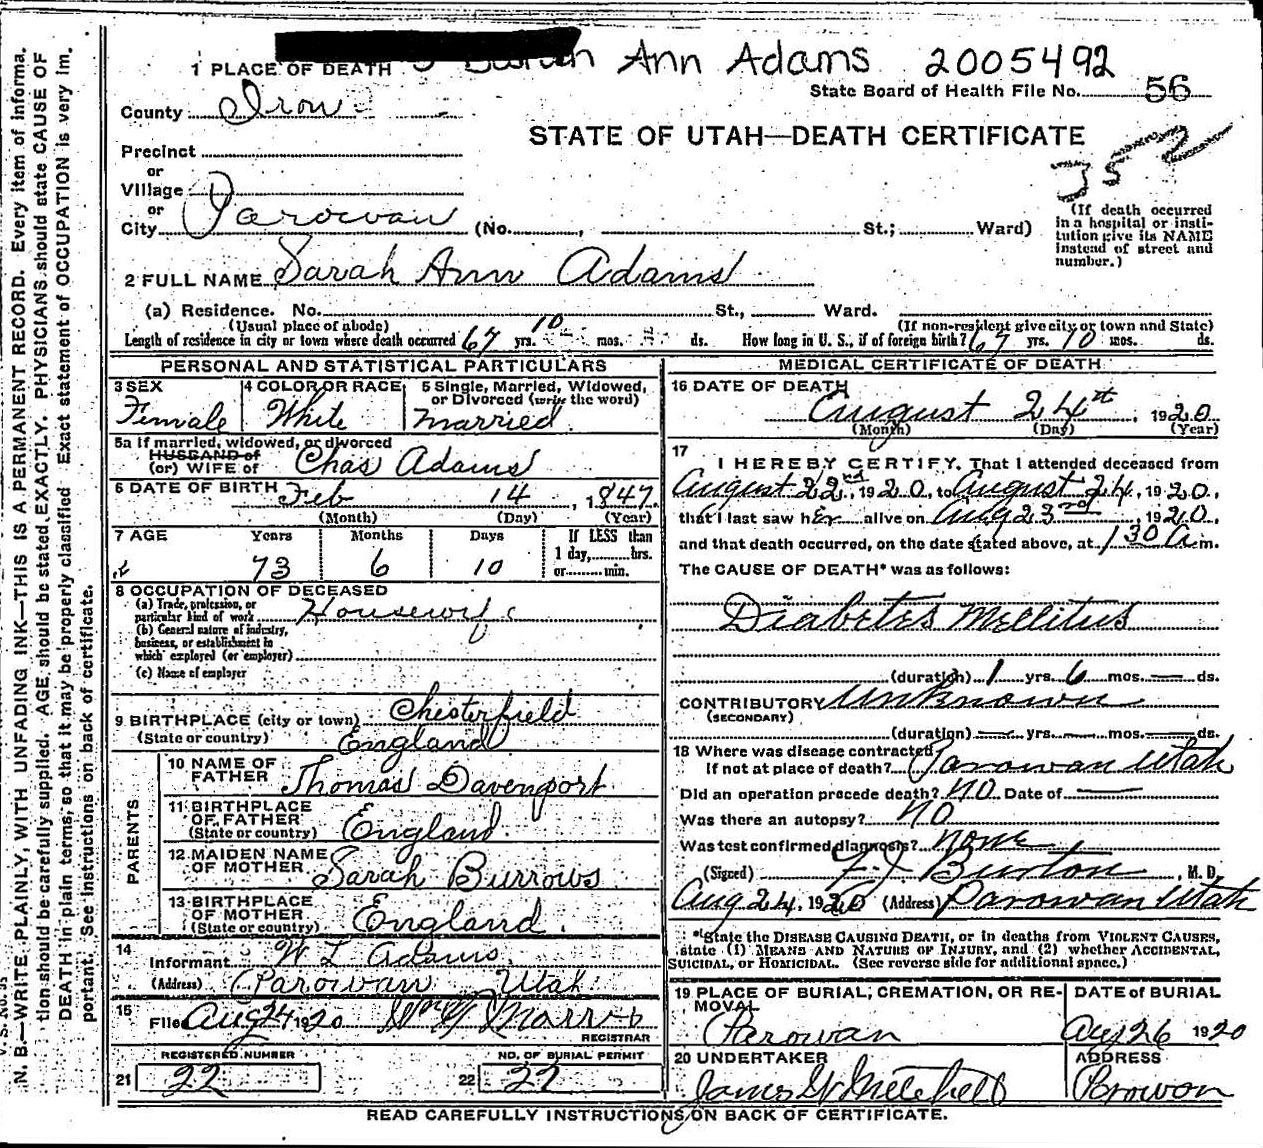 Ann Adams 2005492
1 PLACE OF DEATH
State Board of Health File No. 56
County Iron
STATE OF UTAH—DEATH CERTIFICATE
352
Precinct
or
Village
or
City Parowan (No. , St.; Ward)
(If death occurred
in a hospital or insti-
tution give its NAME
instead of street and
number.)
2 FULL NAME Sarah Ann Adams
(a) Residence. No. St., Ward.
(Usual place of abode) (If non-resident give city or town and State)
Length of residence in city or town where death occurred 67 yrs. 10 mos. ds. How long in U. S., if of foreign birth? 67 yrs. 10 mos. ds.
PERSONAL AND STATISTICAL PARTICULARS
3 SEX
Female
4 COLOR OR RACE
White
5 Single, Married, Widowed,
or Divorced (write the word)
Married
5a If married, widowed, or divorced
HUSBAND of
(or) WIFE of Chas Adams
6 DATE OF BIRTH Feb 14, 1847
(Month) (Day) (Year)
7 AGE Years Months Days If LESS than
1 day, hrs.
or min.
73 6 10
8 OCCUPATION OF DECEASED
(a) Trade, profession, or
particular kind of work Housewife
(b) General nature of industry,
business, or establishment in
which employed (or employer)
(c) Name of employer
9 BIRTHPLACE (city or town) Chesterfield
(State or country) England
PARENTS
10 NAME OF
FATHER Thomas Davenport
11 BIRTHPLACE
OF FATHER
(State or country) England
12 MAIDEN NAME
OF MOTHER Sarah Burrows
13 BIRTHPLACE
OF MOTHER
(State or country) England
14
Informant W L Adams
(Address) Parowan Utah
15
File Aug 24 1920
REGISTRAR
REGISTERED NUMBER
21 22
NO. OF BURIAL PERMIT
22 22
MEDICAL CERTIFICATE OF DEATH
16 DATE OF DEATH
August 24st, 1920
(Month) (Day) (Year)
17
I HEREBY CERTIFY, That I attended deceased from
August 22nd, 1920, to August 24, 1920,
that I last saw her alive on Aug 23rd, 1920,
and that death occurred, on the date stated above, at 1 30 A m.
The CAUSE OF DEATH* was as follows:
Diabetes Mellitus
(duration) 1 yrs. 6 mos. — ds.
CONTRIBUTORY Unknown
(SECONDARY)
(duration) — yrs. — mos. — ds.
18 Where was disease contracted
If not at place of death? Parowan Utah
Did an operation precede death? NO Date of —
Was there an autopsy? NO
Was test confirmed diagnosis? None
(Signed) F. J. Burton, M. D.
Aug 24, 1920 (Address) Parowan Utah
*State the DISEASE CAUSING DEATH, or in deaths from VIOLENT CAUSES,
state (1) MEANS AND NATURE OF INJURY, and (2) whether ACCIDENTAL,
SUICIDAL, or HOMICIDAL. (See reverse side for additional space.)
19 PLACE OF BURIAL, CREMATION, OR RE-
MOVAL
Parowan
DATE of BURIAL
Aug 26 1920
20 UNDERTAKER
James W Mitchell
ADDRESS
Prowon
READ CAREFULLY INSTRUCTIONS ON BACK OF CERTIFICATE.
V. S. No. 95
N. B.—WRITE PLAINLY, WITH UNFADING INK—THIS IS A PERMANENT RECORD. Every item of informa-
tion should be carefully supplied. AGE should be stated EXACTLY. PHYSICIANS should state CAUSE OF
DEATH in plain terms, so that it may be properly classified. Exact statement of OCCUPATION is very im-
portant. See instructions on back of certificate.